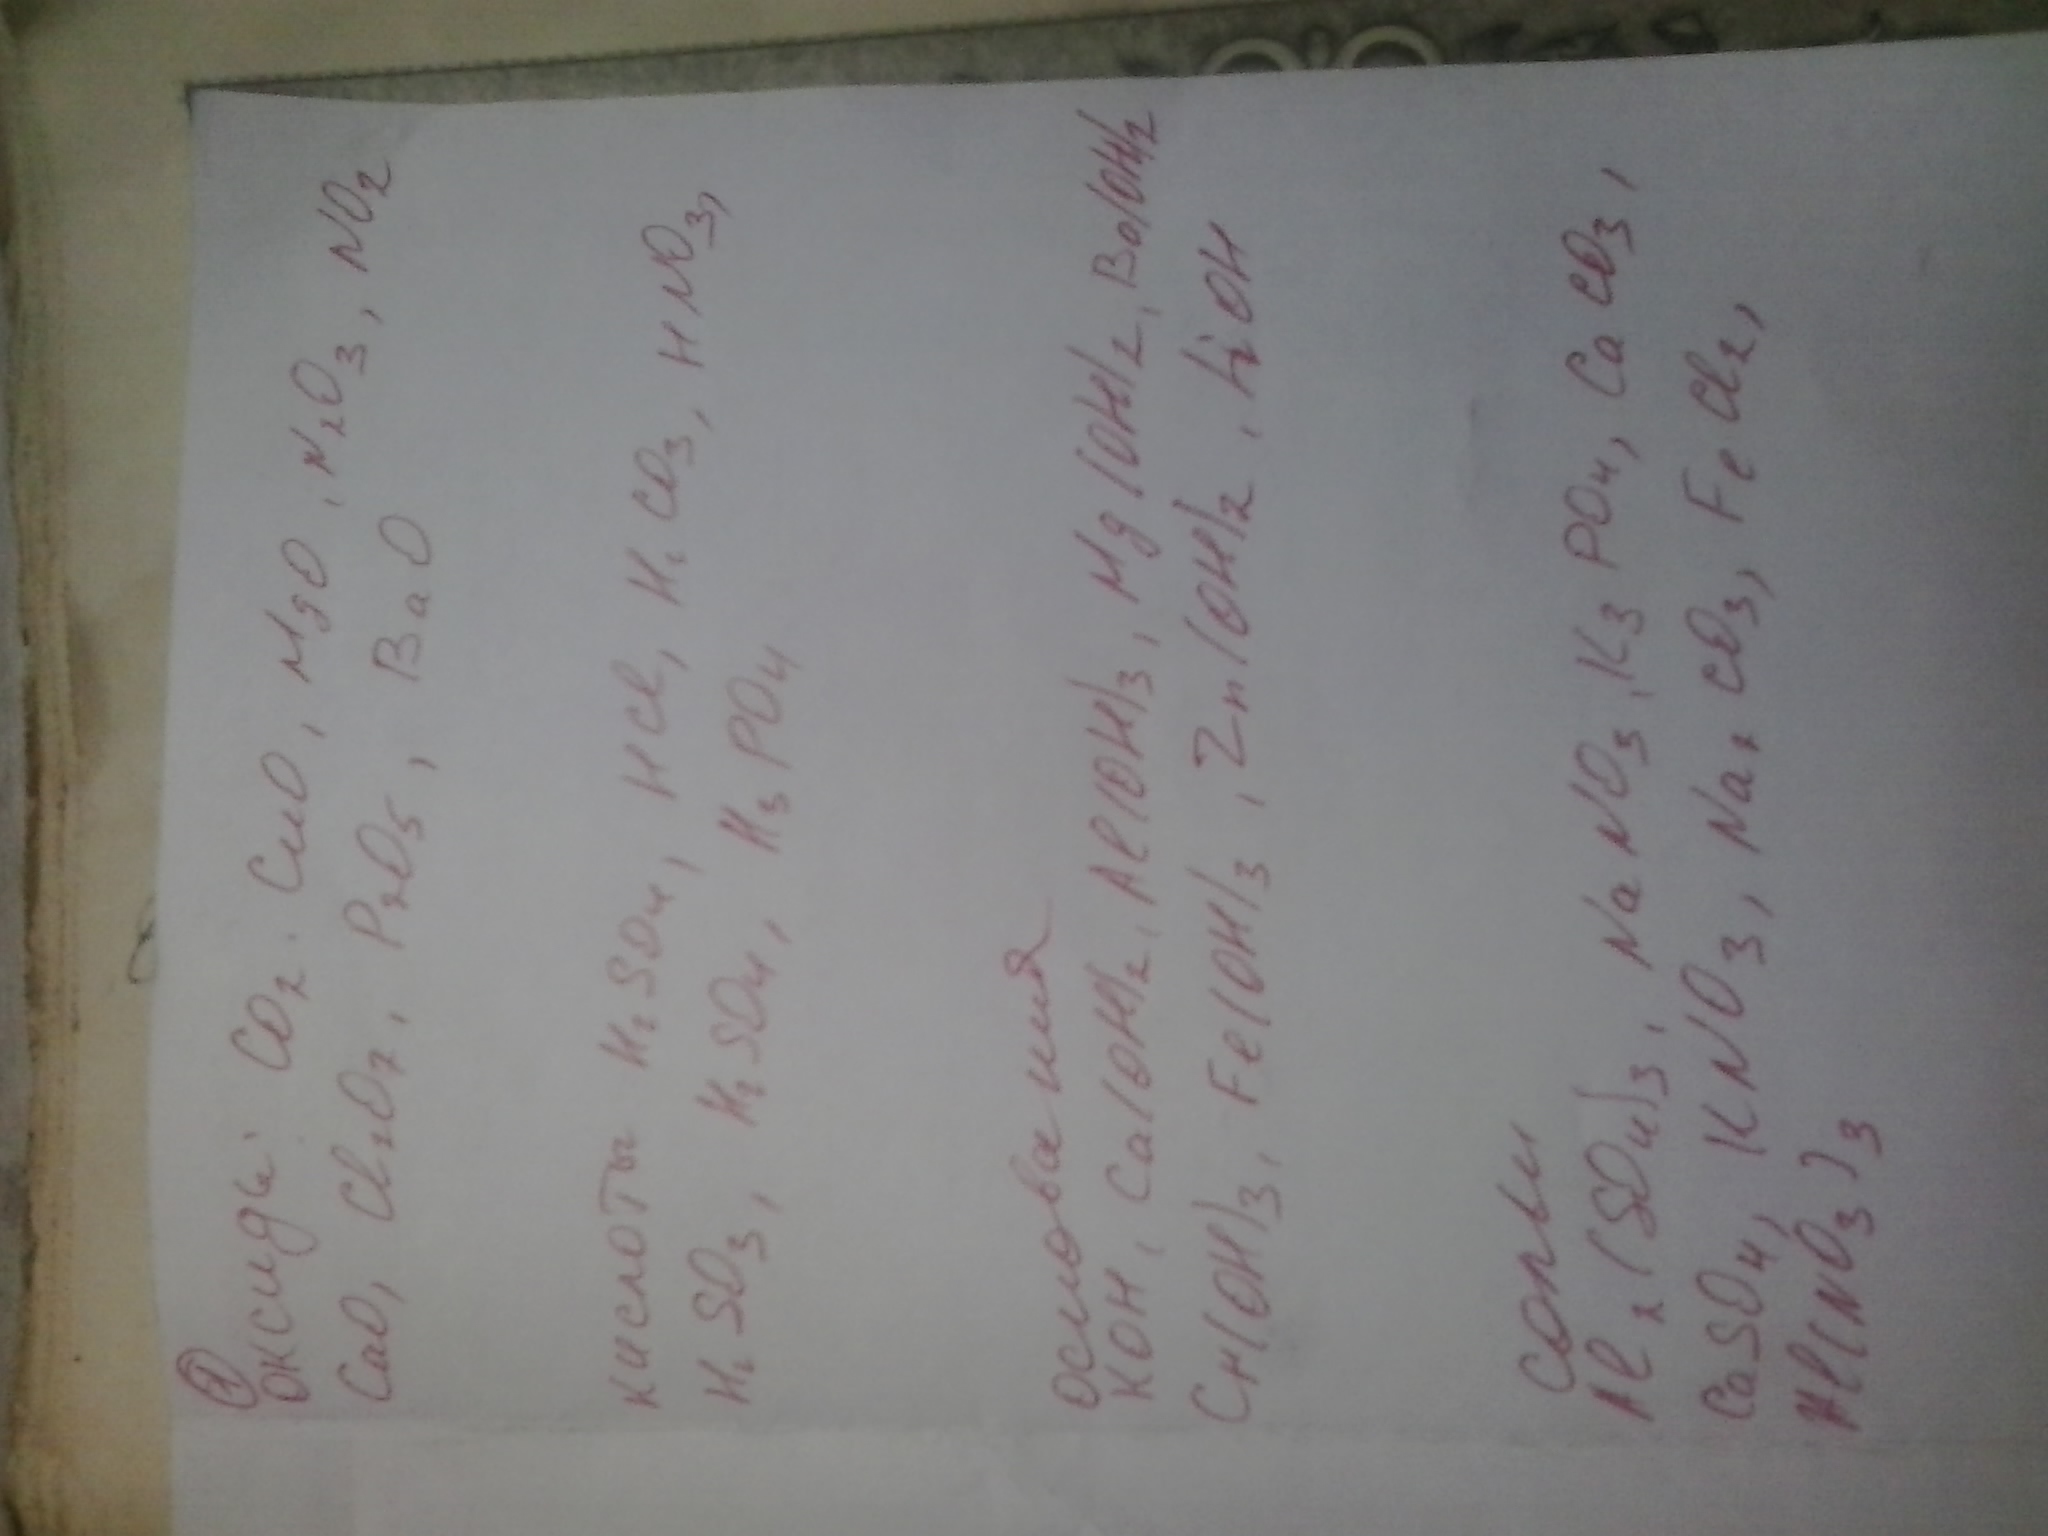 ①
оксиды: CO2. CuO, MgO, N2O3, NO2
CaO, Cl2O7, P2O5, BaO
кислоты H2SO4, HCl, H2CO3, HNO3,
H2SO3, H2SO4, H3PO4
основания
KOH, Ca(OH)2, Al(OH)3, Mg(OH)2, Ba(OH)2
Cr(OH)3, Fe(OH)3, Zn(OH)2, LiOH
соли
Al2(SO4)3, NaNO3, K3PO4, CaCO3,
CaSO4, KNO3, Na2CO3, FeCl2,
Al(NO3)3